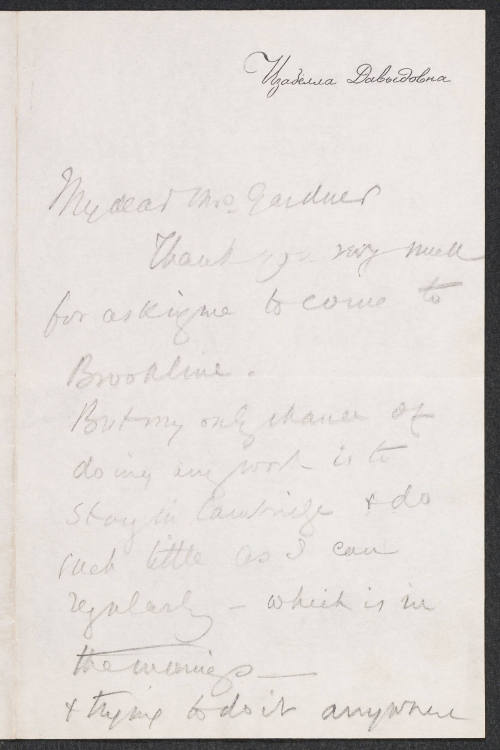 Изабелла Давыдовна
My dear Mrs. Gardner
Thank you very much
for asking me to come to
Brookline.
But my only chance of
doing any work is to
stay in Cambridge & do
such little as I can
regularly – which is in
the mornings –
& trying to do it anywhere